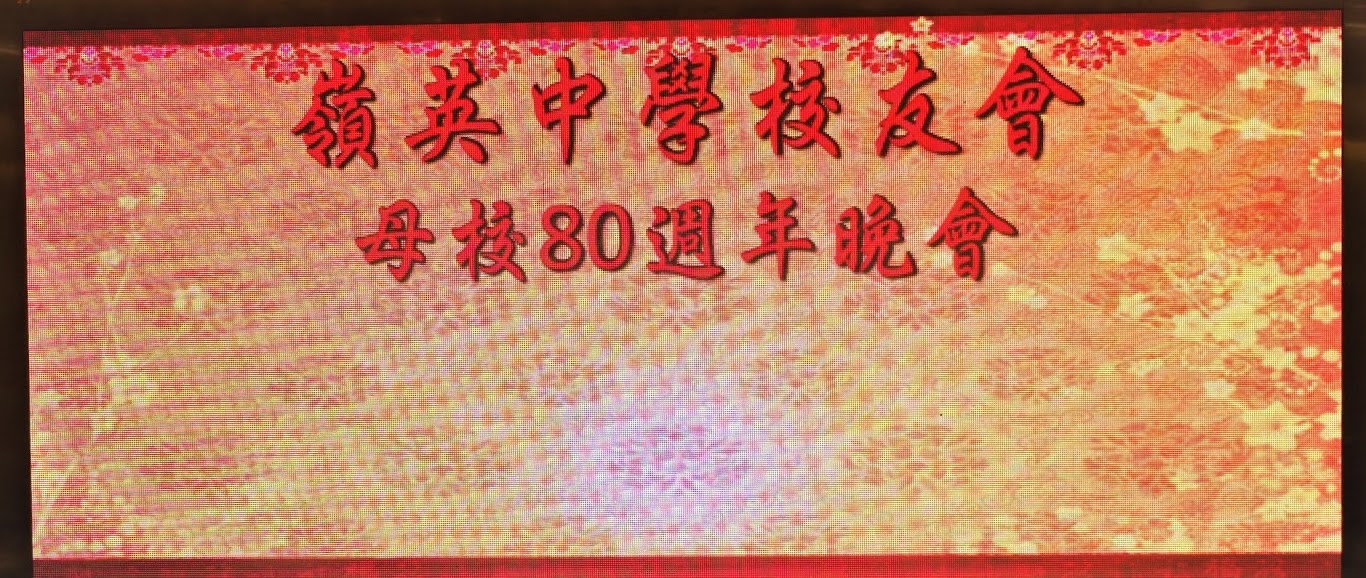 嶺英中學校友會
母校80週年晚會